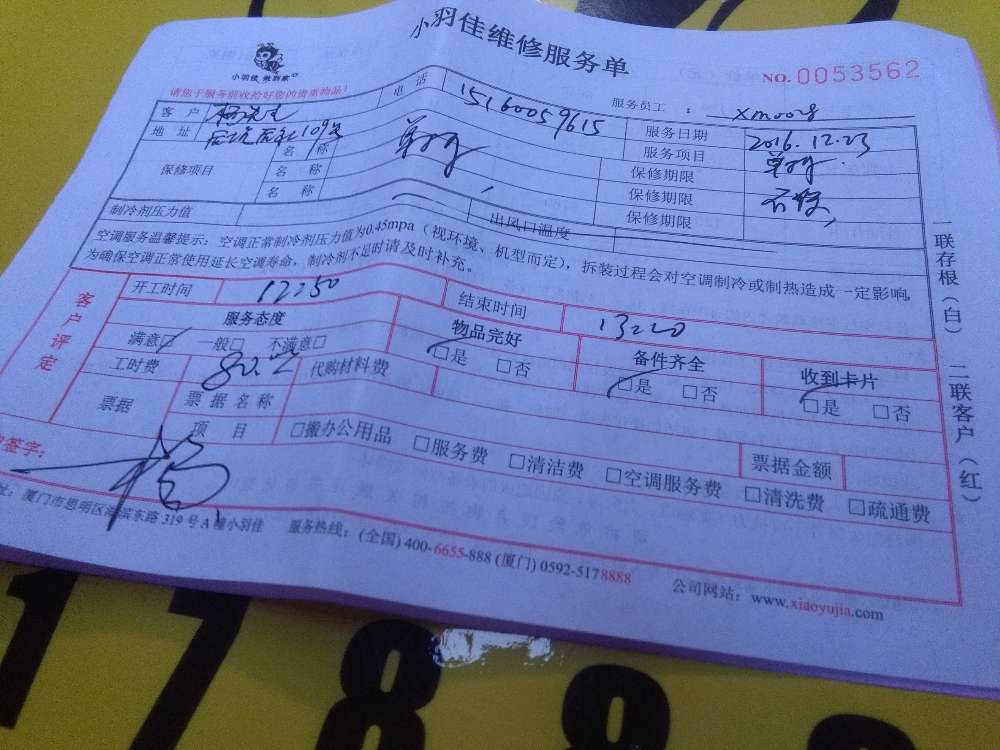 小羽佳维修服务单
小羽佳 做到家
NO. 0053562
请您于服务前收拾好您的贵重物品!
服务员工 : xmoorg
客户 杨先生 电话 15160059615 服务日期 2016.12.23
地址 后坑后社109号 服务项目
保修项目 名称 保修期限
名称 保修期限
名称 保修期限
制冷剂压力值 出风口温度
空调服务温馨提示:空调正常制冷剂压力值为0.45mpa(视环境、机型而定),拆装过程会对空调制冷或制热造成一定影响,
为确保空调正常使用延长空调寿命,制冷剂不足时请及时补充。
客户评定
开工时间 12:50 结束时间 13:20
服务态度 物品完好 备件齐全 收到卡片
满意□ 一般□ 不满意□ □是 □否 □是 □否 □是 □否
工时费 80.元 代购材料费
票据 票据名称 票据金额
项目 □搬办公用品 □服务费 □清洁费 □空调服务费 □清洗费 □疏通费
签字: 杨
址:厦门市思明区湖滨东路319号A幢小羽佳 服务热线:(全国) 400-6655-888 (厦门) 0592-5178888 公司网站:www.xiaoyujia.com
一联存根(白) 二联客户(红)